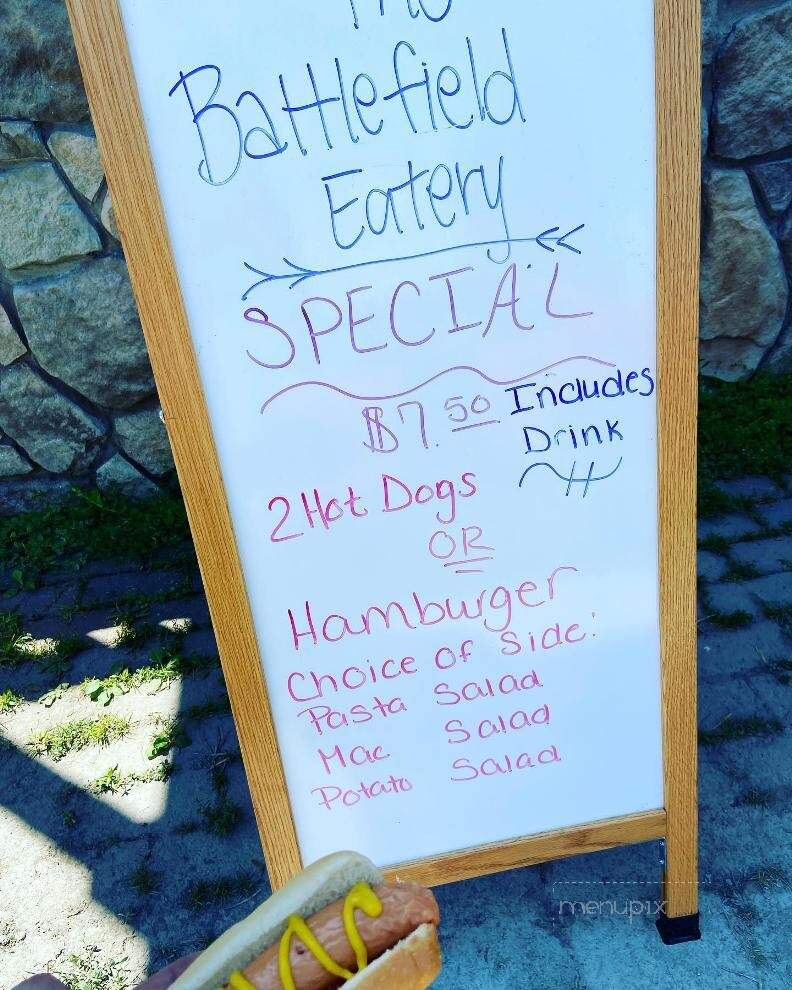 The
Battlefield
Eatery
SPECIAL
$7.50 Includes
Drink
2 Hot Dogs
OR
Hamburger
Choice of Side:
Pasta Salad
Mac Salad
Potato Salad
menupix